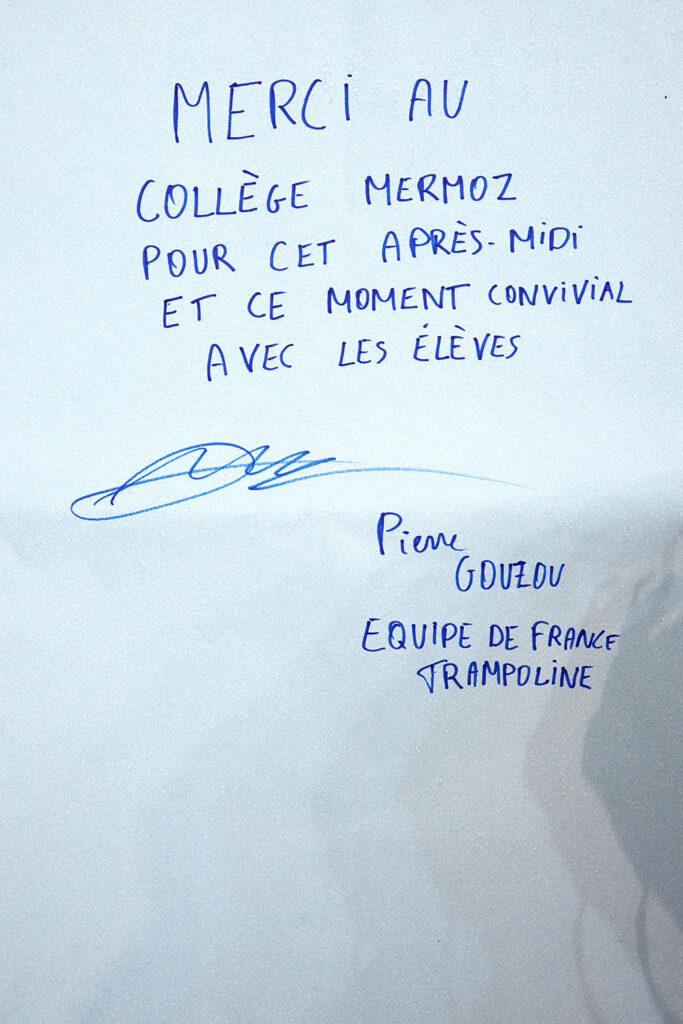 MERCI AU
COLLÈGE MERMOZ
POUR CET APRÈS-MIDI
ET CE MOMENT CONVIVIAL
AVEC LES ÉLÈVES
Pierre
GOUZOU
EQUIPE DE FRANCE
TRAMPOLINE